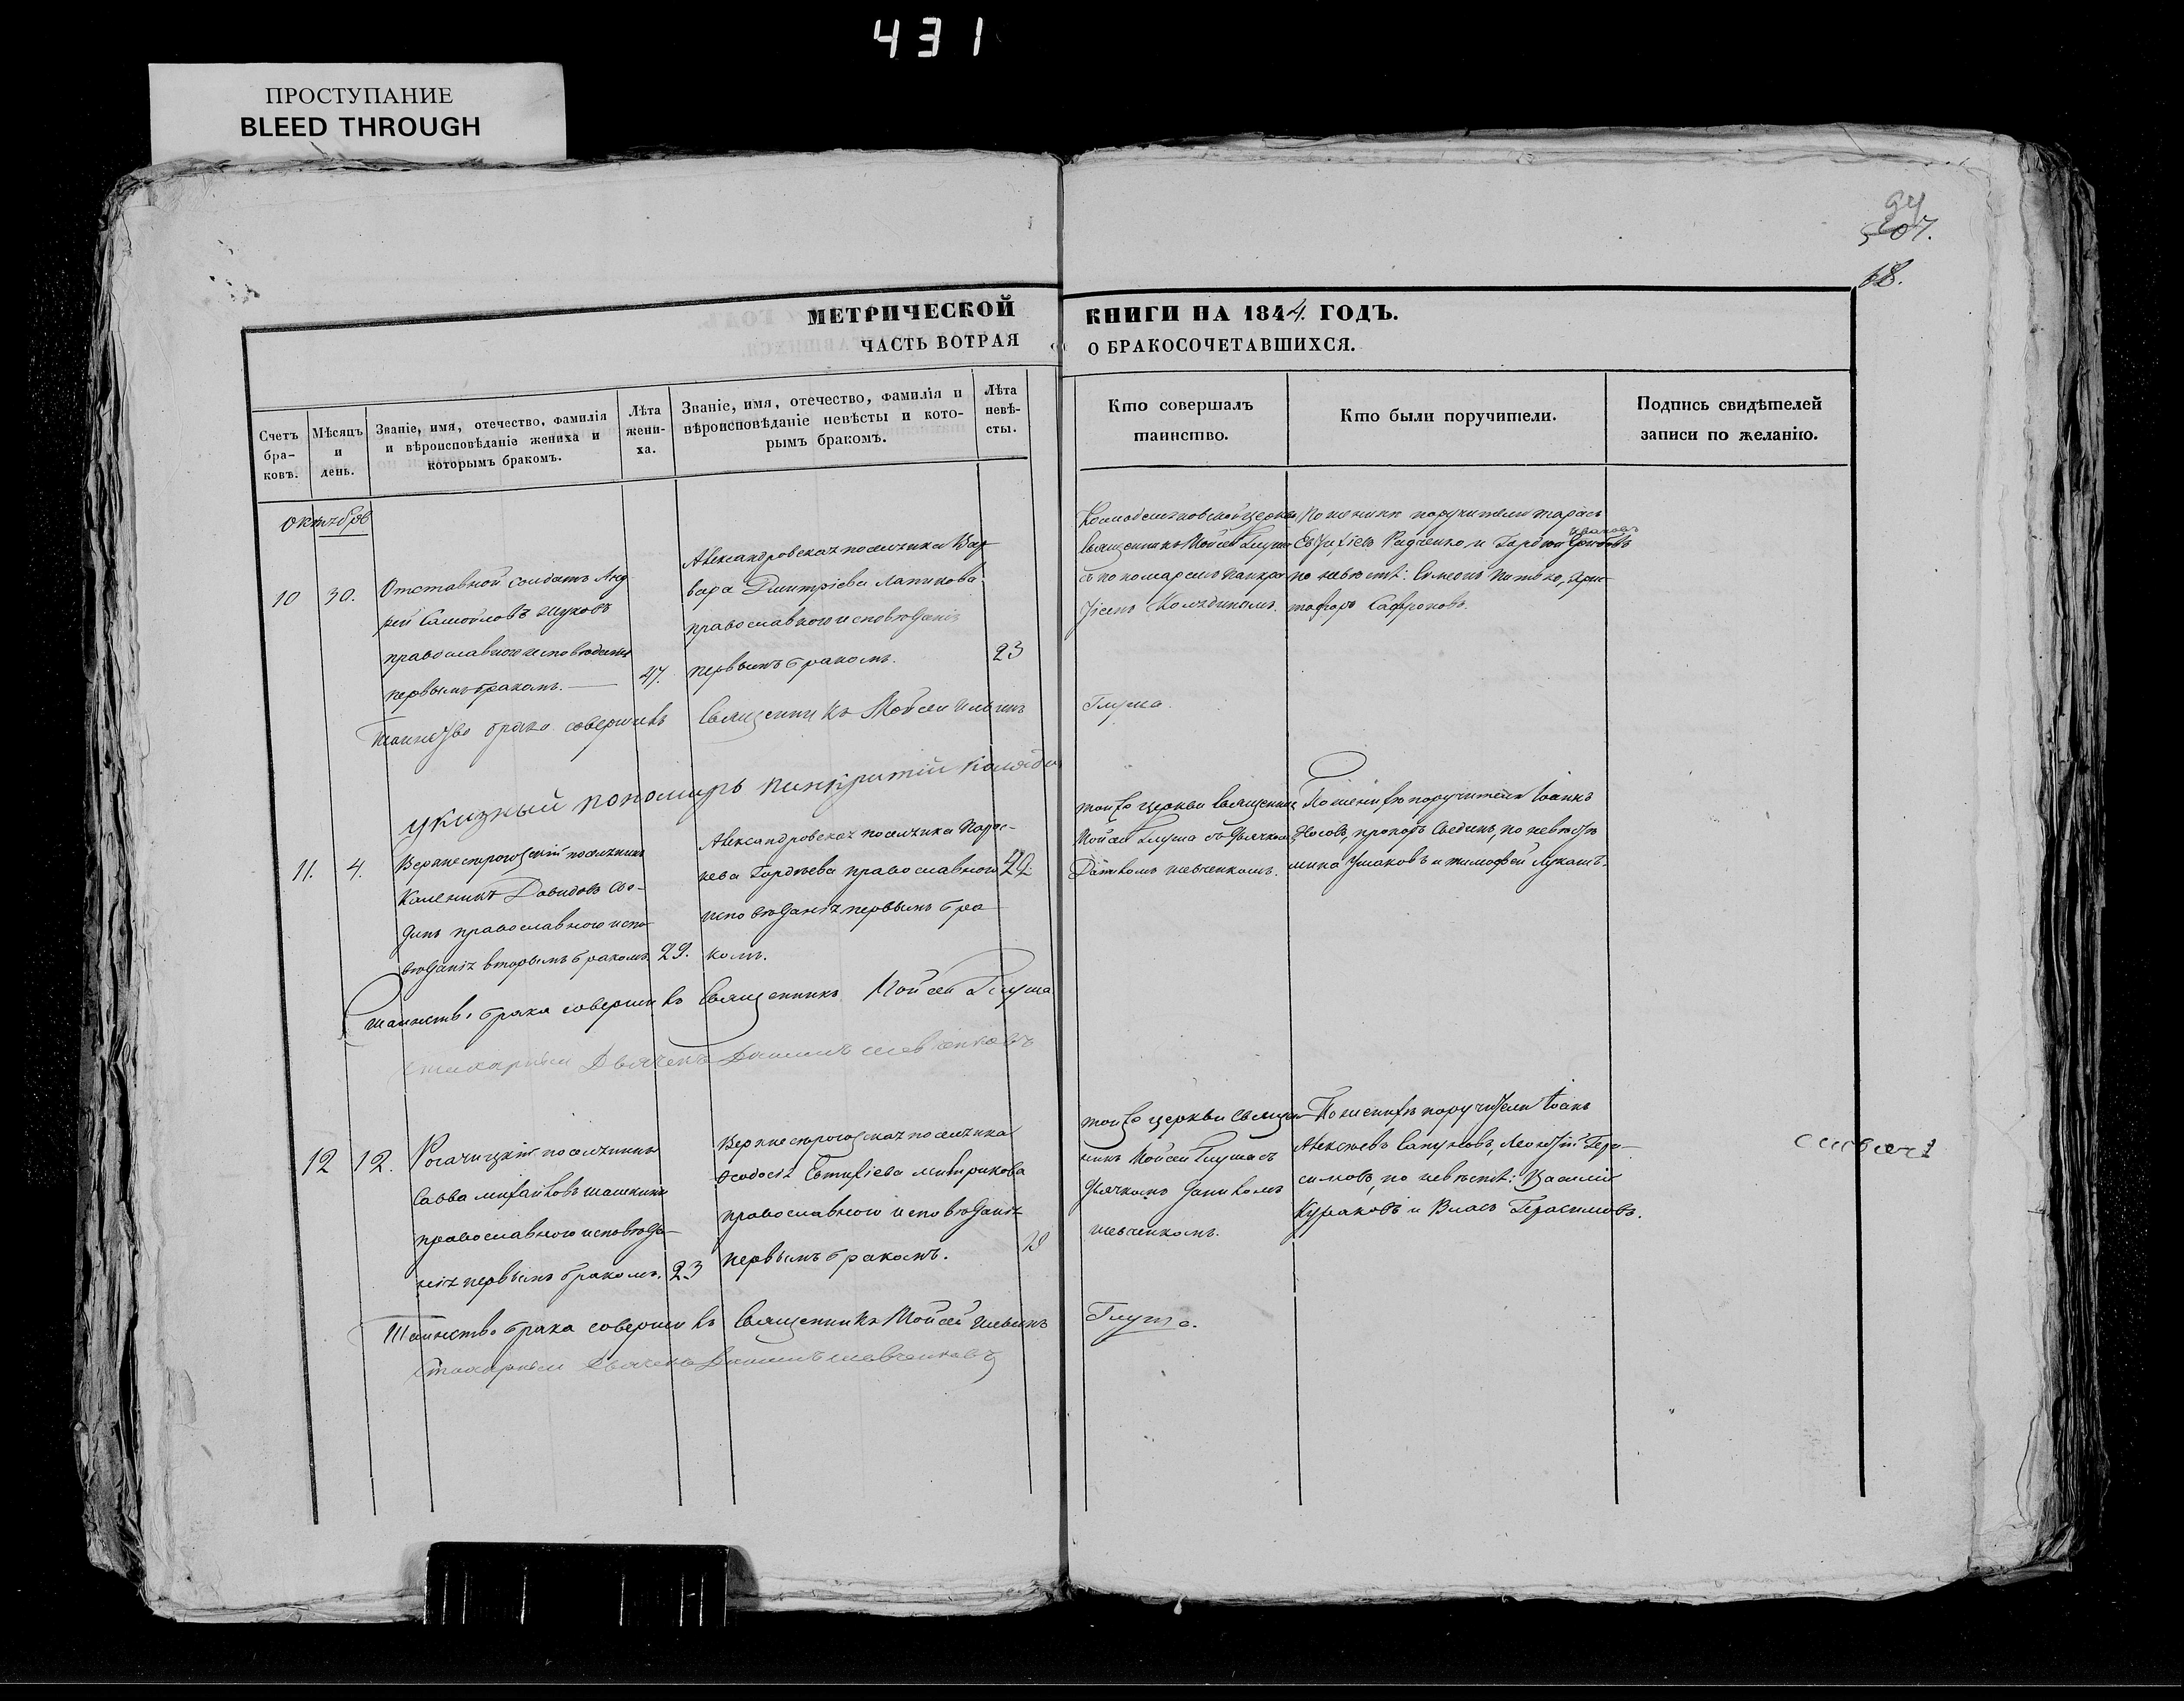 431
ПРОСТУПАНИЕ
BLEED THROUGH
94
507.
68.
МЕТРИЧЕСКОЙ
ЧАСТЬ ВОТРАЯ
КНИГИ НА 1844. ГОДЪ.
О БРАКОСОЧЕТАВШИХСЯ.
Счетъ бра-ковъ.
Мѣсяцъ и день.
Званіе, имя, отечество, фамилія
и вѣроисповѣданіе жениха и
которымъ бракомъ.
Лѣта жени-ха.
Званіе, имя, отечество, фамилія и
вѣроисповѣданіе невѣсты и кото-
рымъ бракомъ.
Лѣта невѣ-сты.
Кто совершалъ
таинство.
Кто были поручители.
Подпись свидѣтелей
записи по желанію.
октября
10
30.
Отставной солдатъ Анд
рей Самойловъ Жуковъ
православного исповѣданія
первымъ бракомъ.
47.
Александровская поселянка Вар
вара Дмитріева Лапикова
православного исповѣданія
первымъ бракомъ.
23
церкви
священникъ Мойсей Глуша
съ пономаремъ Панкра
тіемъ Колядинымъ.
По жениху поручители Тарасъ
Евтихіевъ Радченко, и Гордей
по невѣстѣ: Симеонъ Патыко,
Сафроновъ.
Таинство брака совершилъ Священникъ Мойсей Ильинъ Глуша
указный пономарь Панкратій Коляда
11.
4.
Верхнесѣрогозскій поселянинъ
Калениктъ Давидовъ Све-
динъ православного испо
вѣданія вторымъ бракомъ.
29.
Александровская поселянка Парас-
кева Гордѣева православного
исповѣданія первымъ бра
комъ.
22
той же церкви священникъ
Мойсей Глуша съ дьячкомъ
Даниломъ Шевченкомъ.
По жениху поручители Іоаннъ
Носовъ, Прокоръ Сведунъ, по невѣстѣ
Мина Ушаковъ и Тимофей Лукашъ.
Таинство брака совершилъ Священникъ Мойсей Глуша
стихарный Дьячекъ Даниилъ Шевченковъ
12
12.
Рогачицкій поселянинъ
Савва Михайловъ Шашкинъ
православного исповѣда-
нія первымъ бракомъ.
23
Верхнесѣрогозская поселянка
Ѳеодосія Евтихіева Митрикова
православного исповѣданія
первымъ бракомъ.
19
той же церкви священ-
никъ Мойсей Глуша съ
дьячкомъ Даниломъ
Шевченкомъ.
По жениху поручители Іоанъ
Алексѣевъ Сапуновъ, Леонтій Гера-
симовъ, по невѣстѣ: Василій
Кураковъ и Власъ Герасимовъ.
Таинство брака совершилъ Священникъ Мойсей Ильинъ Глуша.
стихарный Дьячекъ Даниилъ Шевченковъ